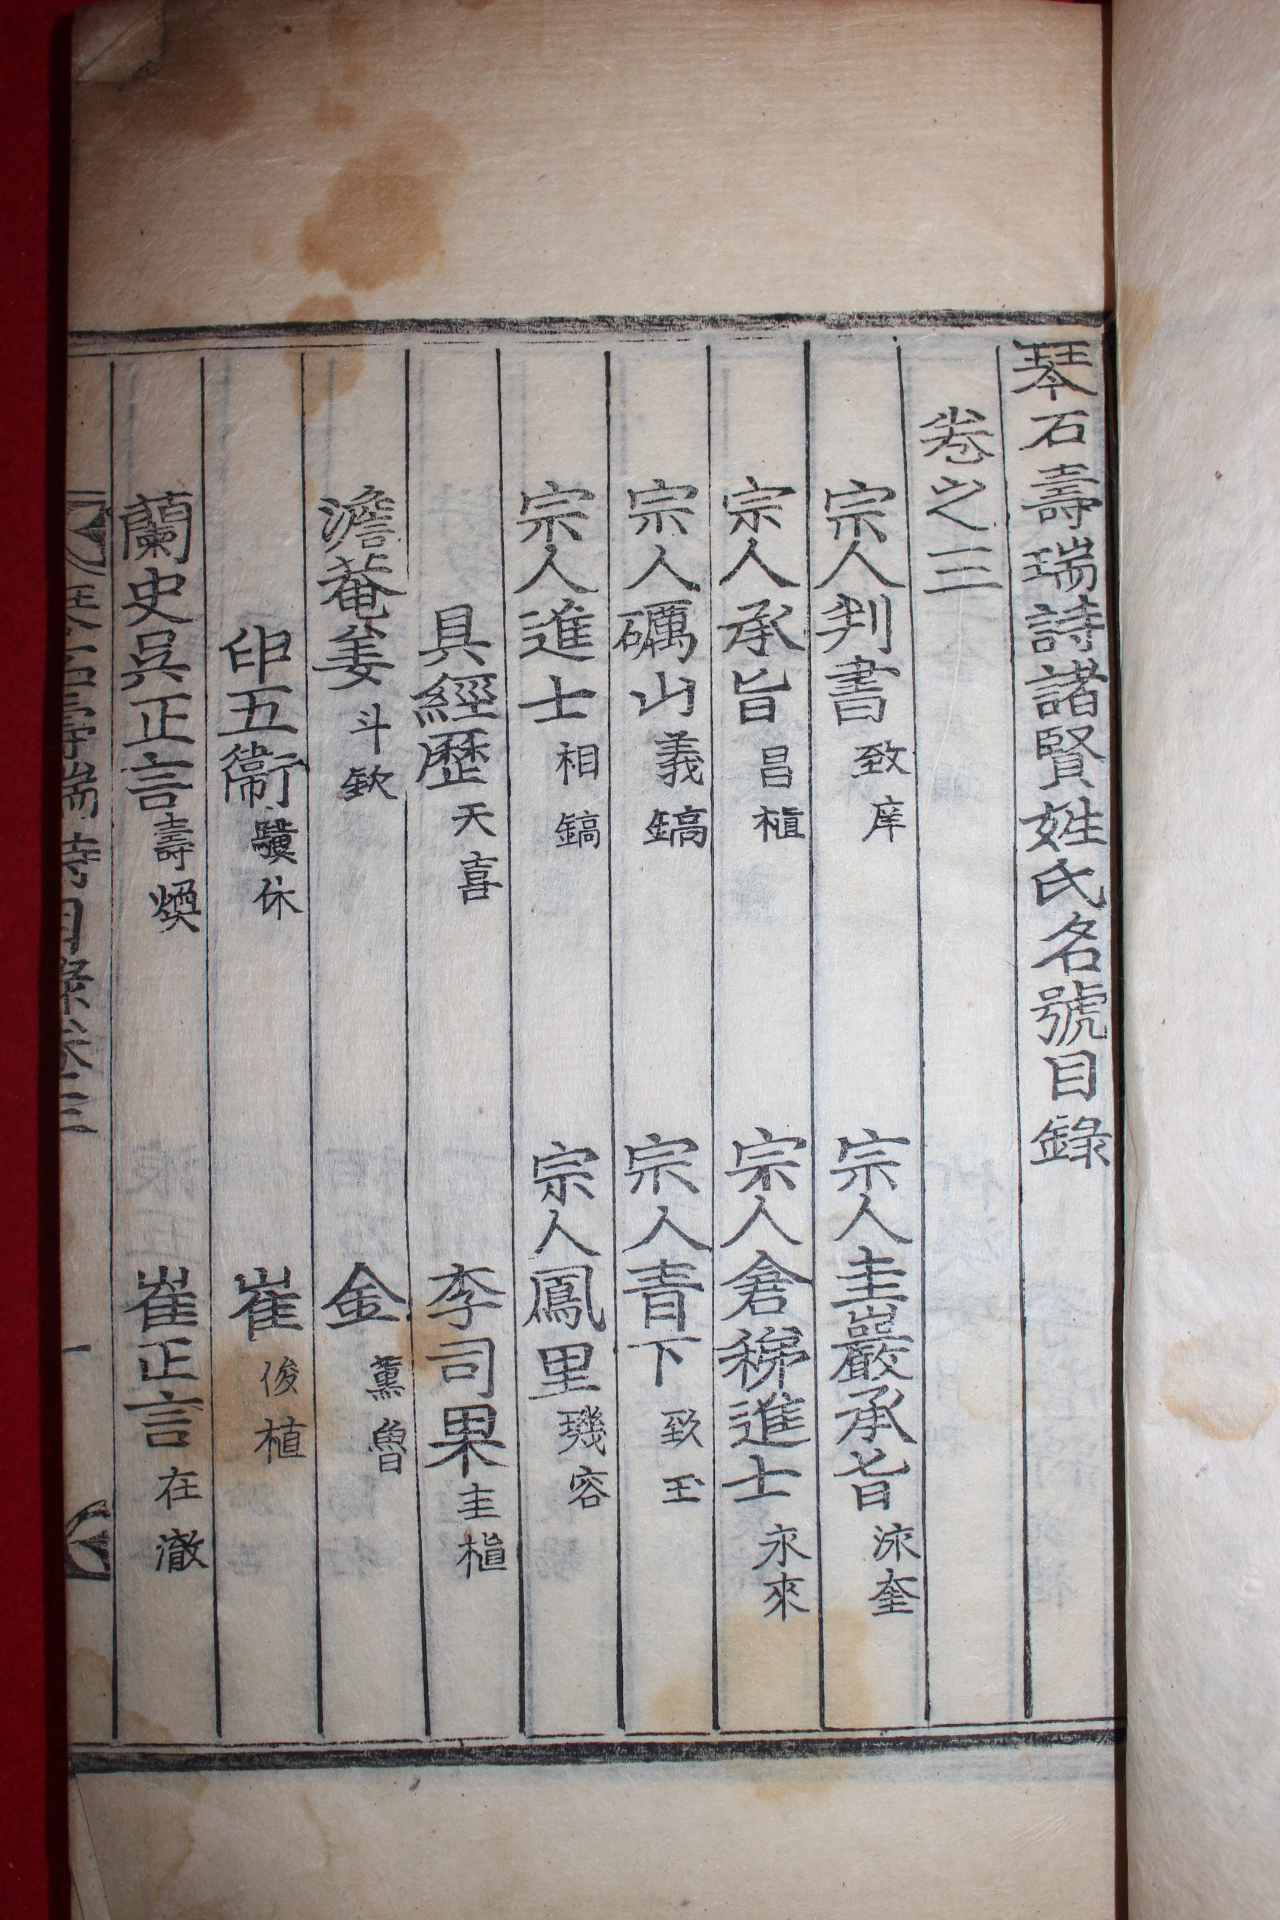 琴石壽瑞詩諸賢姓氏名號目錄
卷之三
宗人判書致庠 宗人圭巖承旨泳奎
宗人承旨昌植 宗人倉稊進士永來
宗人礪山義鎬 宗人靑下致玉
宗人進士相鎬 宗人鳳里璣容
具經歷天喜 李司果圭植
澹菴姜斗欽 金薰魯
印五衛驥休 崔俊植
蘭史吳正言壽煥 崔正言在澈
琴石壽瑞詩目錄卷三 一